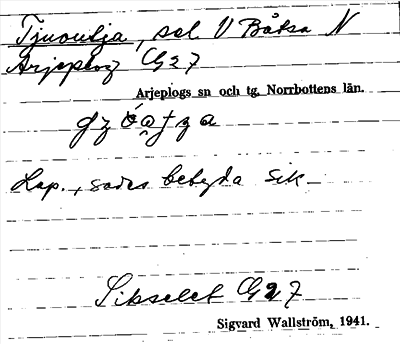 Tjuoutja, sel V Båtsa N
Arjeplog G27
Arjeplogs sn och tg. Norrbottens län.
Lap., sades betyda sik
Sikselet G27
Sigvard Wallström, 1941.